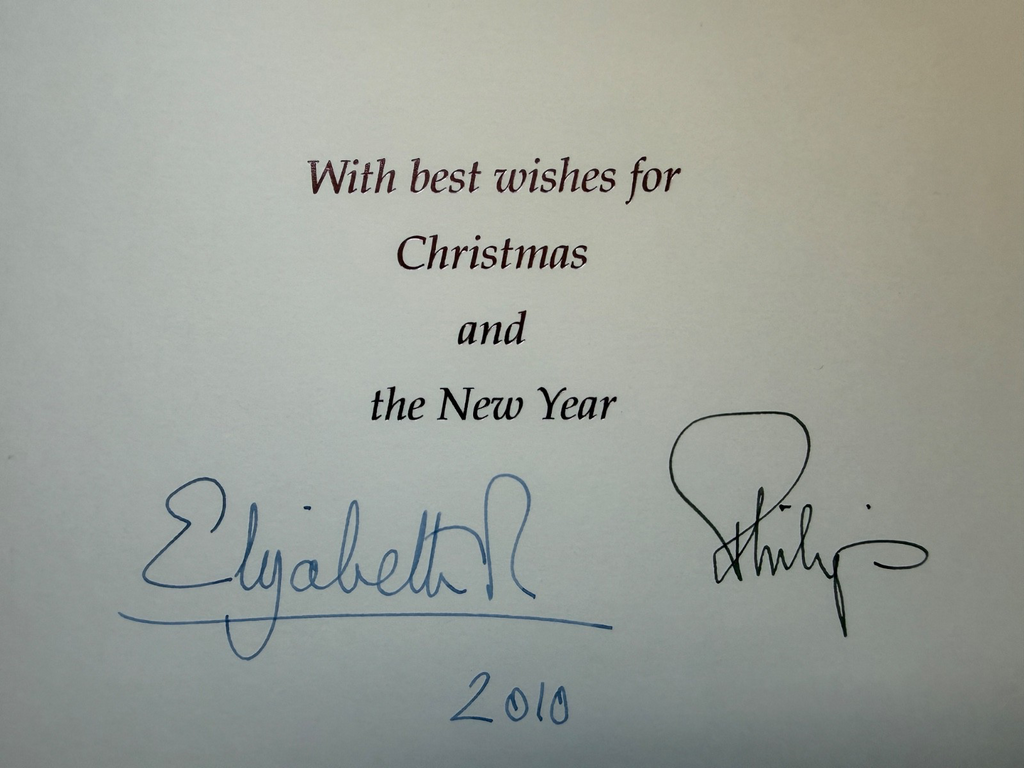 With best wishes for
Christmas
and
the New Year
Elizabeth R
Philip
2010